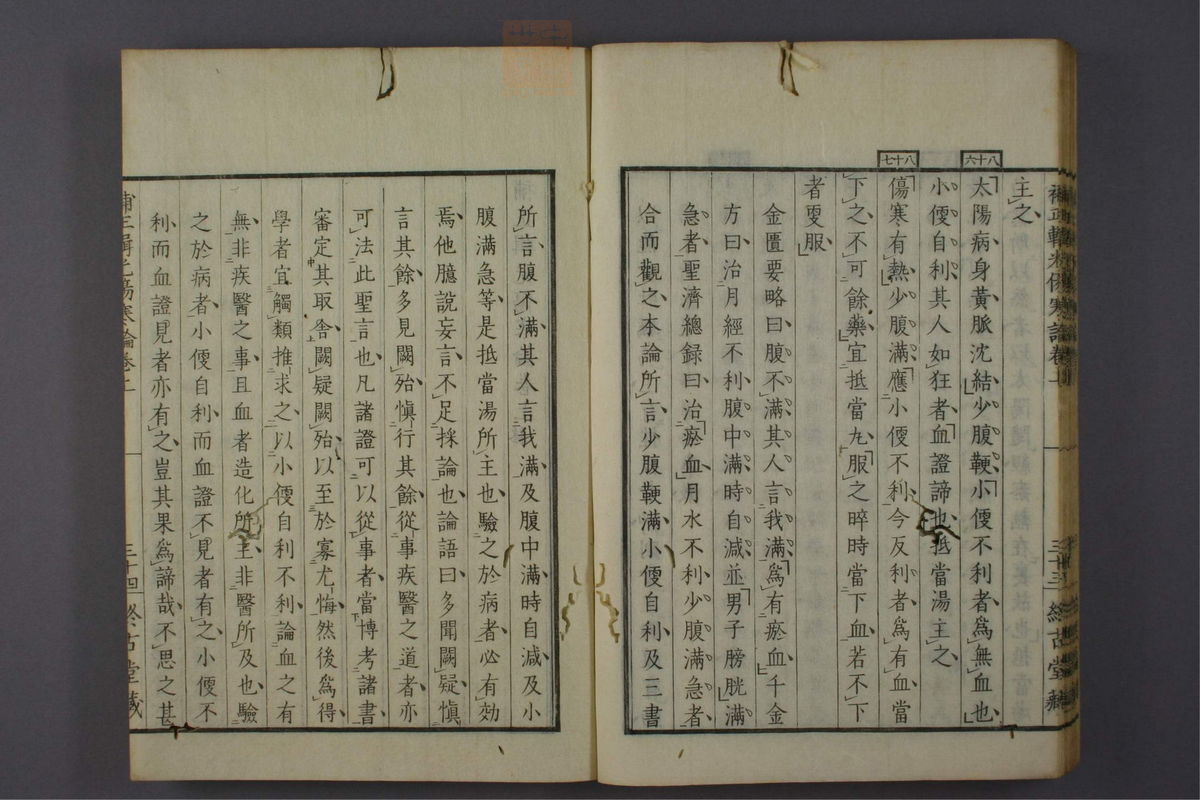 補正輯光傷寒論卷上
三十三
終古堂藏
主之
八十六
太陽病身黃脈沈結少腹鞕小便不利者爲無血也
小便自利其人如狂者血證諦也抵當湯主之
八十七
傷寒有熱少腹滿應小便不利今反利者爲有血當
下之不可餘藥宜抵當丸服之晬時當下血若不下
者更服
金匱要略曰腹不滿其人言我滿爲有瘀血千金
方曰治月經不利腹中滿時自減並男子膀胱滿
急者聖濟總録曰治瘀血月水不利少腹滿急者
合而觀之本論所言少腹鞕滿小便自利及三書
所言腹不滿其人言我滿及腹中滿時自減及小
腹滿急等是抵當湯所主也驗之於病者必有効
焉他臆說妄言不足採論也論語曰多聞闕疑愼
言其餘多見闕殆愼行其餘從事疾醫之道者亦
可法此聖言也凡諸證可以從事者當博考諸書
審定其取舍闕疑闕殆以至於寡尤悔然後爲得
學者宜觸類推求之以小便自利不利論血之有
無非疾醫之事且血者造化所主非醫所及也驗
之於病者小便自利而血證不見者有之小便不
利而血證見者亦有之豈其果爲諦哉不思之甚
三十四
終古堂藏